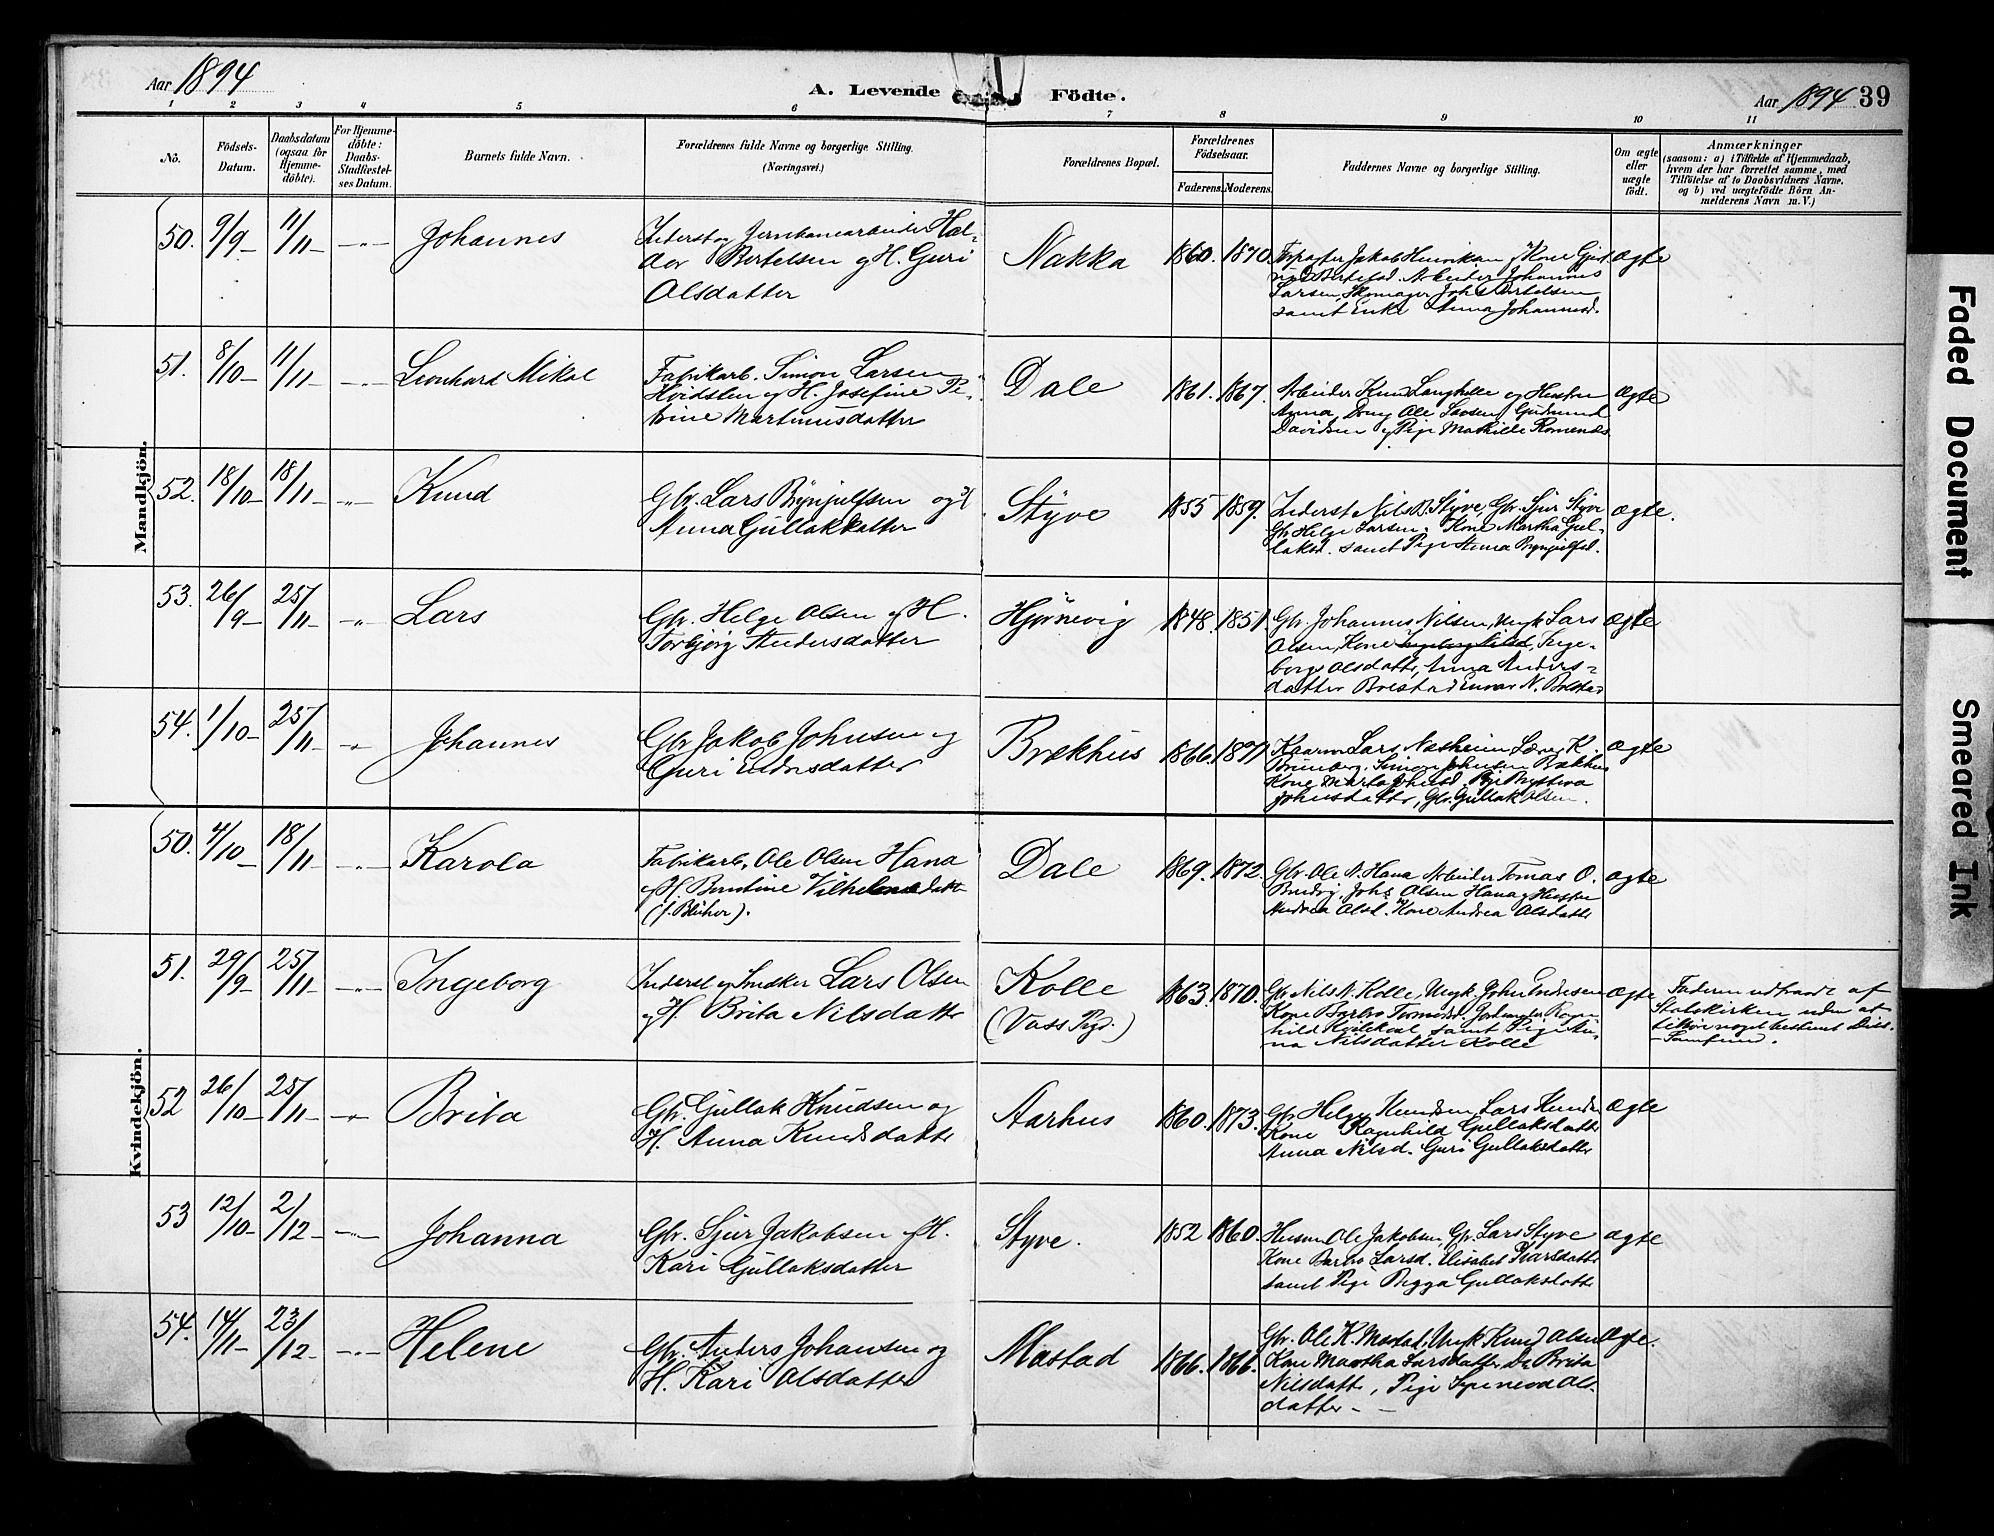 Aar 1894
A. Levende Födte.
Aar 1894 39
1 2 3 4 5 6 7 8 9 10 11
Nô. Födsels-Datum. Daabsdatum (ogsaa för Hjemmedöbte). For Hjemmedöbte: Daabs-Stadfæstelses Datum. Barnets fulde Navn. Forældrenes fulde Navne og borgerlige Stilling. (Næringsvei.) Forældrenes Bopæl. Forældrenes Födselsaar. Faderens. Moderens. Faddernes Navne og borgerlige Stilling. Om ægte eller uægte födt. Anmærkninger (saasom: a) i Tilfælde af Hjemmedaab, hvem der har forrettet samme, med Tilföielse af to Daabsvidners Navne, og b) ved uægtefödte Börn Anmelderens Navn m. V.)
Mandkjön.
50. 9/9 11/11 -"- Johannes
Inderst og Jernbanearbeider Hal-
dor Bertelsen og H. Guri
Olsdatter
Nakka 1860. 1870.
Larsen, Skomager Johs Bertelsen
samt Enke Anna Johannesd.
ægte
51. 8/10 11/11 -"- Leonhard Mikal
Fabrikarb. Simon Larsen
Hvidsten og H. Josefine Pe-
trine Martinusdatter
Dale 1861. 1867.
Arbeider Knud Langhelle og Hustru
Anna, Ole Larsen, Gudmund
Davidsen og Pige Mathilde
ægte
52. 18/10 18/11 -"- Knud
Gbr. Lars Brynjulfsen og H
Anna Gullakdatter
Styve 1855 1859.
Inderst Nils B. Styve, Gbr. Sjur Styve
Gbr Helge Larsen, Kone Martha Gul-
laksd. samt Pige Anna Brynjulfsd.
ægte.
53. 26/9 25/11 -"- Lars
Gbr. Helge Olsen og H.
Torbjørg Andersdatter
Hjørnevig 1848. 1851.
Gbr. Johannes Nilsen, Ungk Lars
Olsen, Kone Ingeborg Nilsd, Inge-
borg Olsdatter, Anna Anders-
datter
ægte
54. 1/10 25/11 -"- Johannes
Gbr Jakob Johnsen og
Guri Endresdatter
Brækhus 1866. 1871
Lars Næsheim Lærer K.
Simon Johnsen Brækhus
Kone
Johnsdatter, Gbr. Gullak Olsen.
ægte
Kvindekjön.
50. 4/10 18/11 -"- Karola
Fabrikarb. Ole Olsen Hana
og H. Berntine Vilhelmsdatter
(f. Blüher).
Dale 1869. 1872.
Gbr. Ole N. Hana Arbeider Tomas O.
Johs Olsen Hana og Hustru
Andrea Olsd. Kone Andrea Olsdatter
ægte
51. 29/9 25/11 -"- Ingeborg
Inderst og Snedker Lars Olsen
og H. Brita Nilsdatter
Kolle
(Voss Pgd.)
1863. 1870.
Gbr Nils N. Kolle, Ungk. John Endresen
Kone Barbro Jordemoder Ragn-
hild Kvilekval samt Pige An-
na Nilsdatter Kolle
ægte
Faderen udtraadt af
Statskirken uden at
tilhøre noget bestemt Dis-
samfund.
52 26/10 25/11 -"- Brita
Gbr. Gullak Knudsen og
H. Anna Knudsdatter
Aarhus 1860. 1873.
Gbr Helge Knudsen, Lars Knuds.
Kone Ragnhild Gullaksdatter
Anna Nilsd. Guri Gullaksdatter
ægte
53 12/10 2/12 -"- Johanna
Gbr. Sjur Jakobsen og H.
Kari Gullaksdatter
Styve. 1852 1860.
Husm Ole Jakobsen, Gbr. Lars Styve
Kone Barbro Larsd. Elisabet
samt Pige Brygga Gullaksdatter
ægte
54. 14/11 23/12 -"- Helene
Gbr. Anders Johansen og
H. Kari Olsdatter
Mæstad 1866. 1866.
Gbr. Ole K. Mæstad, Ungk Knud Olsen
Kone Martha Larsdatter, Do Brita
Nilsdatter, Pige Synneva Ols-
datter -
Ægte.
Faded Document
Smeared Ink